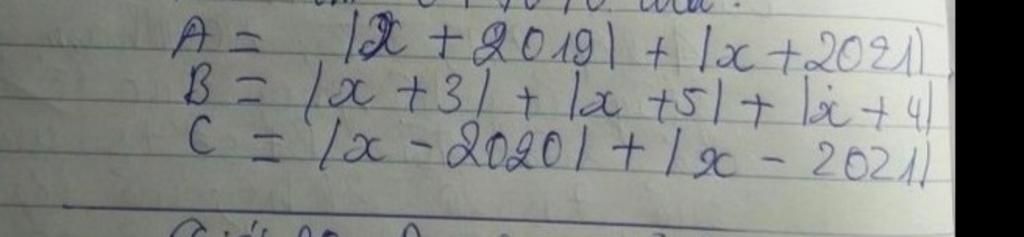 A = |x + 2019| + |x + 2021|
B = |x + 3| + |x + 5| + |x + 4|
C = |x - 2020| + |x - 2021|